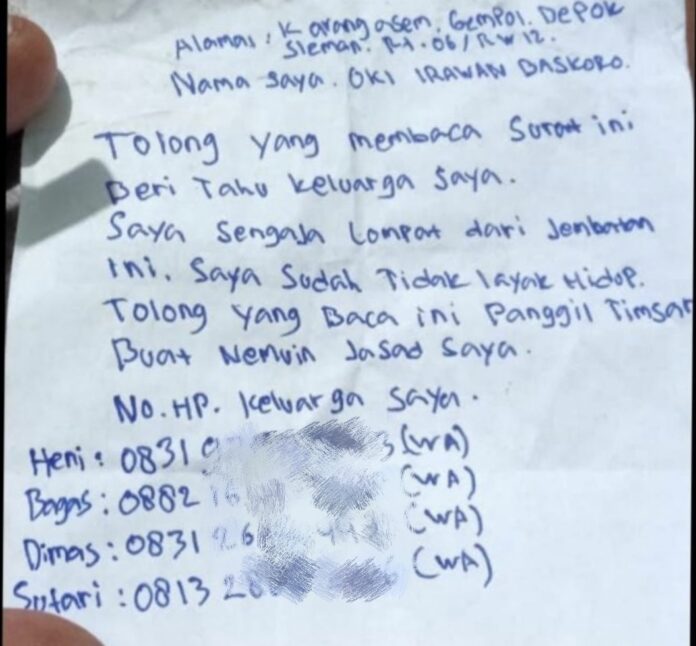 Alamat : Karangasem. Gempol. Depok
Sleman. RT. 06 / RW 12.
Nama saya. OKI IRAWAN BASKORO.
Tolong yang membaca Surat ini
Beri Tahu keluarga saya.
Saya Sengaja Lompat dari Jembatan
ini. Saya Sudah Tidak layak Hidop.
Tolong yang Baca ini Panggil Timsar
Buat Nemuin Jasad Saya.
No. HP. keluarga saya.
Heni : 0831 (WA)
Bagas : 0882 (WA)
Dimas : 0831 (WA)
Sutari : 0813 (WA)